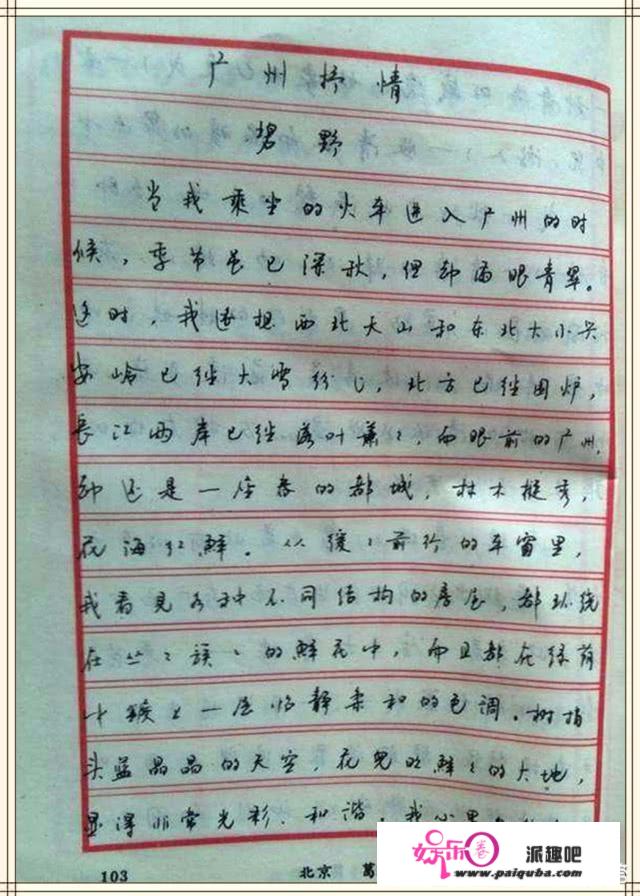 广州抒情
碧野
当我乘坐的火车进入广州的时
候，季节虽已深秋，但却满眼青翠。
这时，我遥想西北天山和东北大小兴
安岭已经大雪纷〻，北方已经围炉，
长江两岸已经落叶萧〻，而眼前的广州，
却还是一座春的都城，林木挺秀，
花海红鲜。从缓〻前行的车窗里，
我看见各种不同结构的房屋，都环绕
在丛〻簇〻的鲜花中，而且都在绿荫
中镀上一层恬静柔和的色调。树梢
头蓝晶晶的天空，花儿鲜〻的大地，
显得非常光彩、和谐。我心里
103 北京 葛
娱乐圈 派趣吧
www.paiquba.com